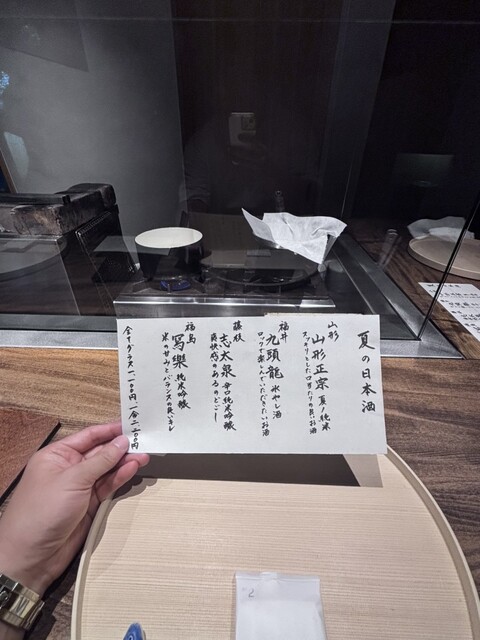 夏の日本酒
山形
山形正宗 夏ノ純米
スッキリとした口当たりの良いお酒
福井
九頭龍 氷やし酒
ロックで楽しんでいただきたいお酒
藤枝
志太泉 辛口純米吟醸
爽快感のあるのどごし
福島
寫樂 純米吟醸
米の甘みとバランスの良いキレ
全てグラス一一〇〇円 一合二二〇〇円